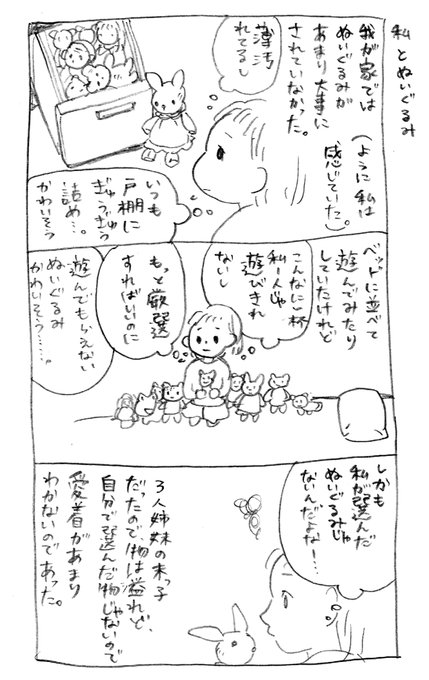 私とぬいぐるみ
我が家では
ぬいぐるみが
あまり大事に
されていなかった。
(ように私は
感じていた)。
薄汚
れてるし
いつも
戸棚に
ぎゅうぎゅう
詰め…。
かわいそう
ベッドに並べて
遊んでみたり
していたけれど
こんなに一杯
私一人じゃ
遊びきれ
ないし
もっと厳選
すればいいのに
遊んでもらえない
ぬいぐるみ
かわいそう……。
しかも
私が選んだ
ぬいぐるみじゃ
ないんだよなー…
3人姉妹の末っ子
だったので、物は溢れど、
自分で選んだ物じゃないので
愛着があまり
わかないのであった。